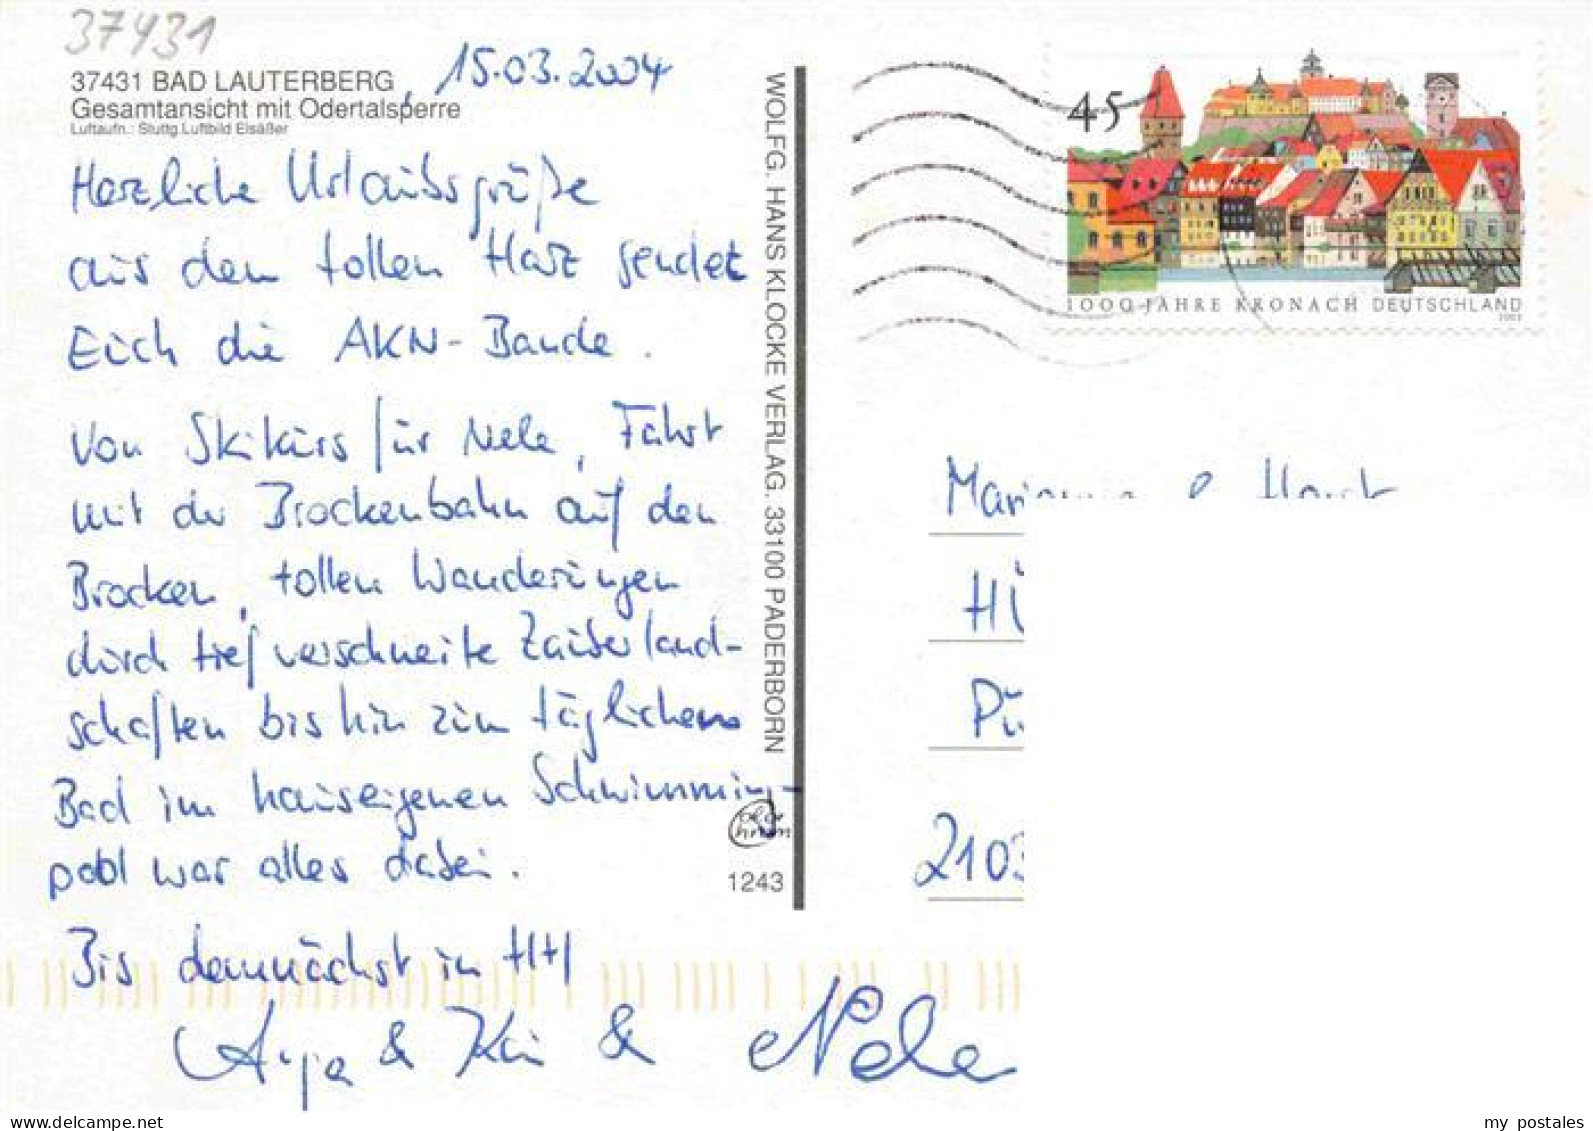 37431
37431 BAD LAUTERBERG, 15.03.2004
Gesamtansicht mit Odertalsperre
Luftaufn.: Stuttg.Luftbild Elsäßer
Herzliche Urlaubsgrüße
aus dem tollen Harz sendet
Euch die AKN-Bande.
Von Skikurs für Nele, Fahrt
mit der Brockenbahn auf den
Brocken, tollen Wanderungen
durch tief verschneite Zauberland-
schaften bis hin zum täglichen
Bad im hauseigenen Schwimming-
pool war alles dabei.
Bis demnächst in HH
Anja & Kai & Nele
WOLFG. HANS KLOCKE VERLAG. 33100 PADERBORN
1243
45
1000 JAHRE KRONACH DEUTSCHLAND
2003
Marianne & Horst
HÜ
Pü
2103
my postales